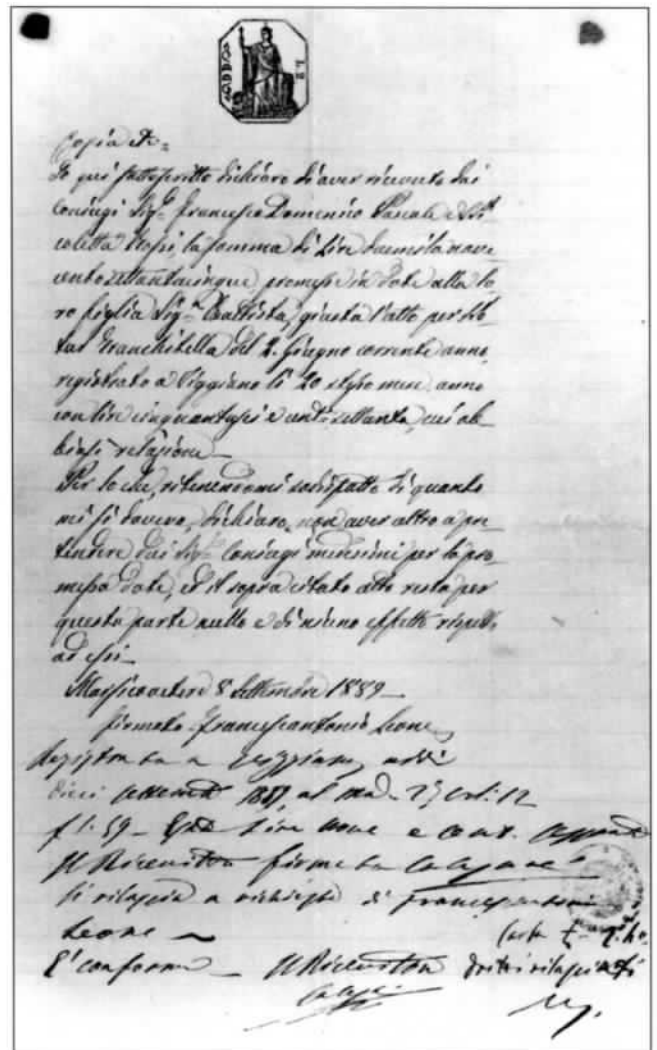 Copia
Io qui sottoscritto dichiaro di aver ricevuto dai
Coniugi Sig.ri Francesco Domenico Pascale e Ni
coletta, la somma di Lire duemila nove
cento settantacinque, promesse in dote alla lo
ro figlia Sig.ra Battista, giusta l'atto per No-
tar Franchitella del 2. Giugno corrente anno,
registrato a Viggiano lì 20 stesso mese, anno
con lire cinquantasei e centi settanta, cui ab-
biasi relazione_
Per lo che, ritenendomi sodisfatto di quanto
mi si doveva, dichiaro, non aver altro a pre
tendere dai Sig.ri Coniugi medesimi per la pro-
messa dote, ed il sopra citato atto resta per
questa parte nullo e di niuno effetto rispetto
ad essi_
Marsicovetere 8 Settembre 1889_
firmato Francescantonio Leone
Registrata a Viggiano addì
dieci 1889, al
Lire nove e cent.
Il Ricevitore firmato
Si rilascia a richiesta di Francescantonio
Leone
È conforme_ Il Ricevitore